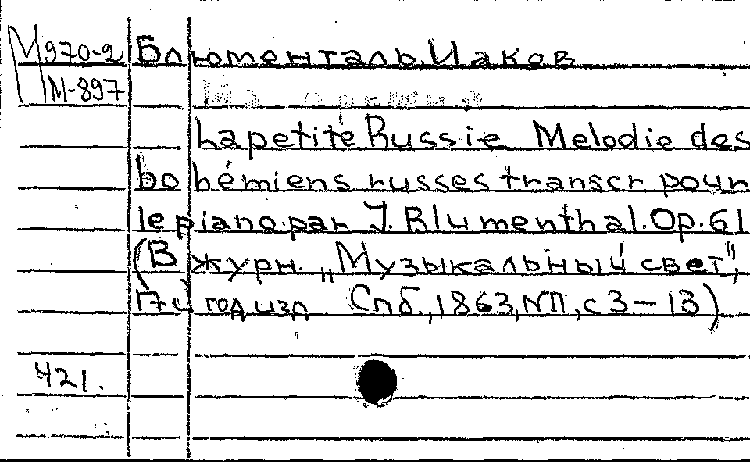 М970-2 Блюменталь Иаков
М-897
La petite Russie Melodie des
bohémiens russes transcr pour
le piano par J. Blumenthal. Op. 61
(В журн. „Музыкальный свет",
17й год изд Спб., 1863, с 3-13)
421.